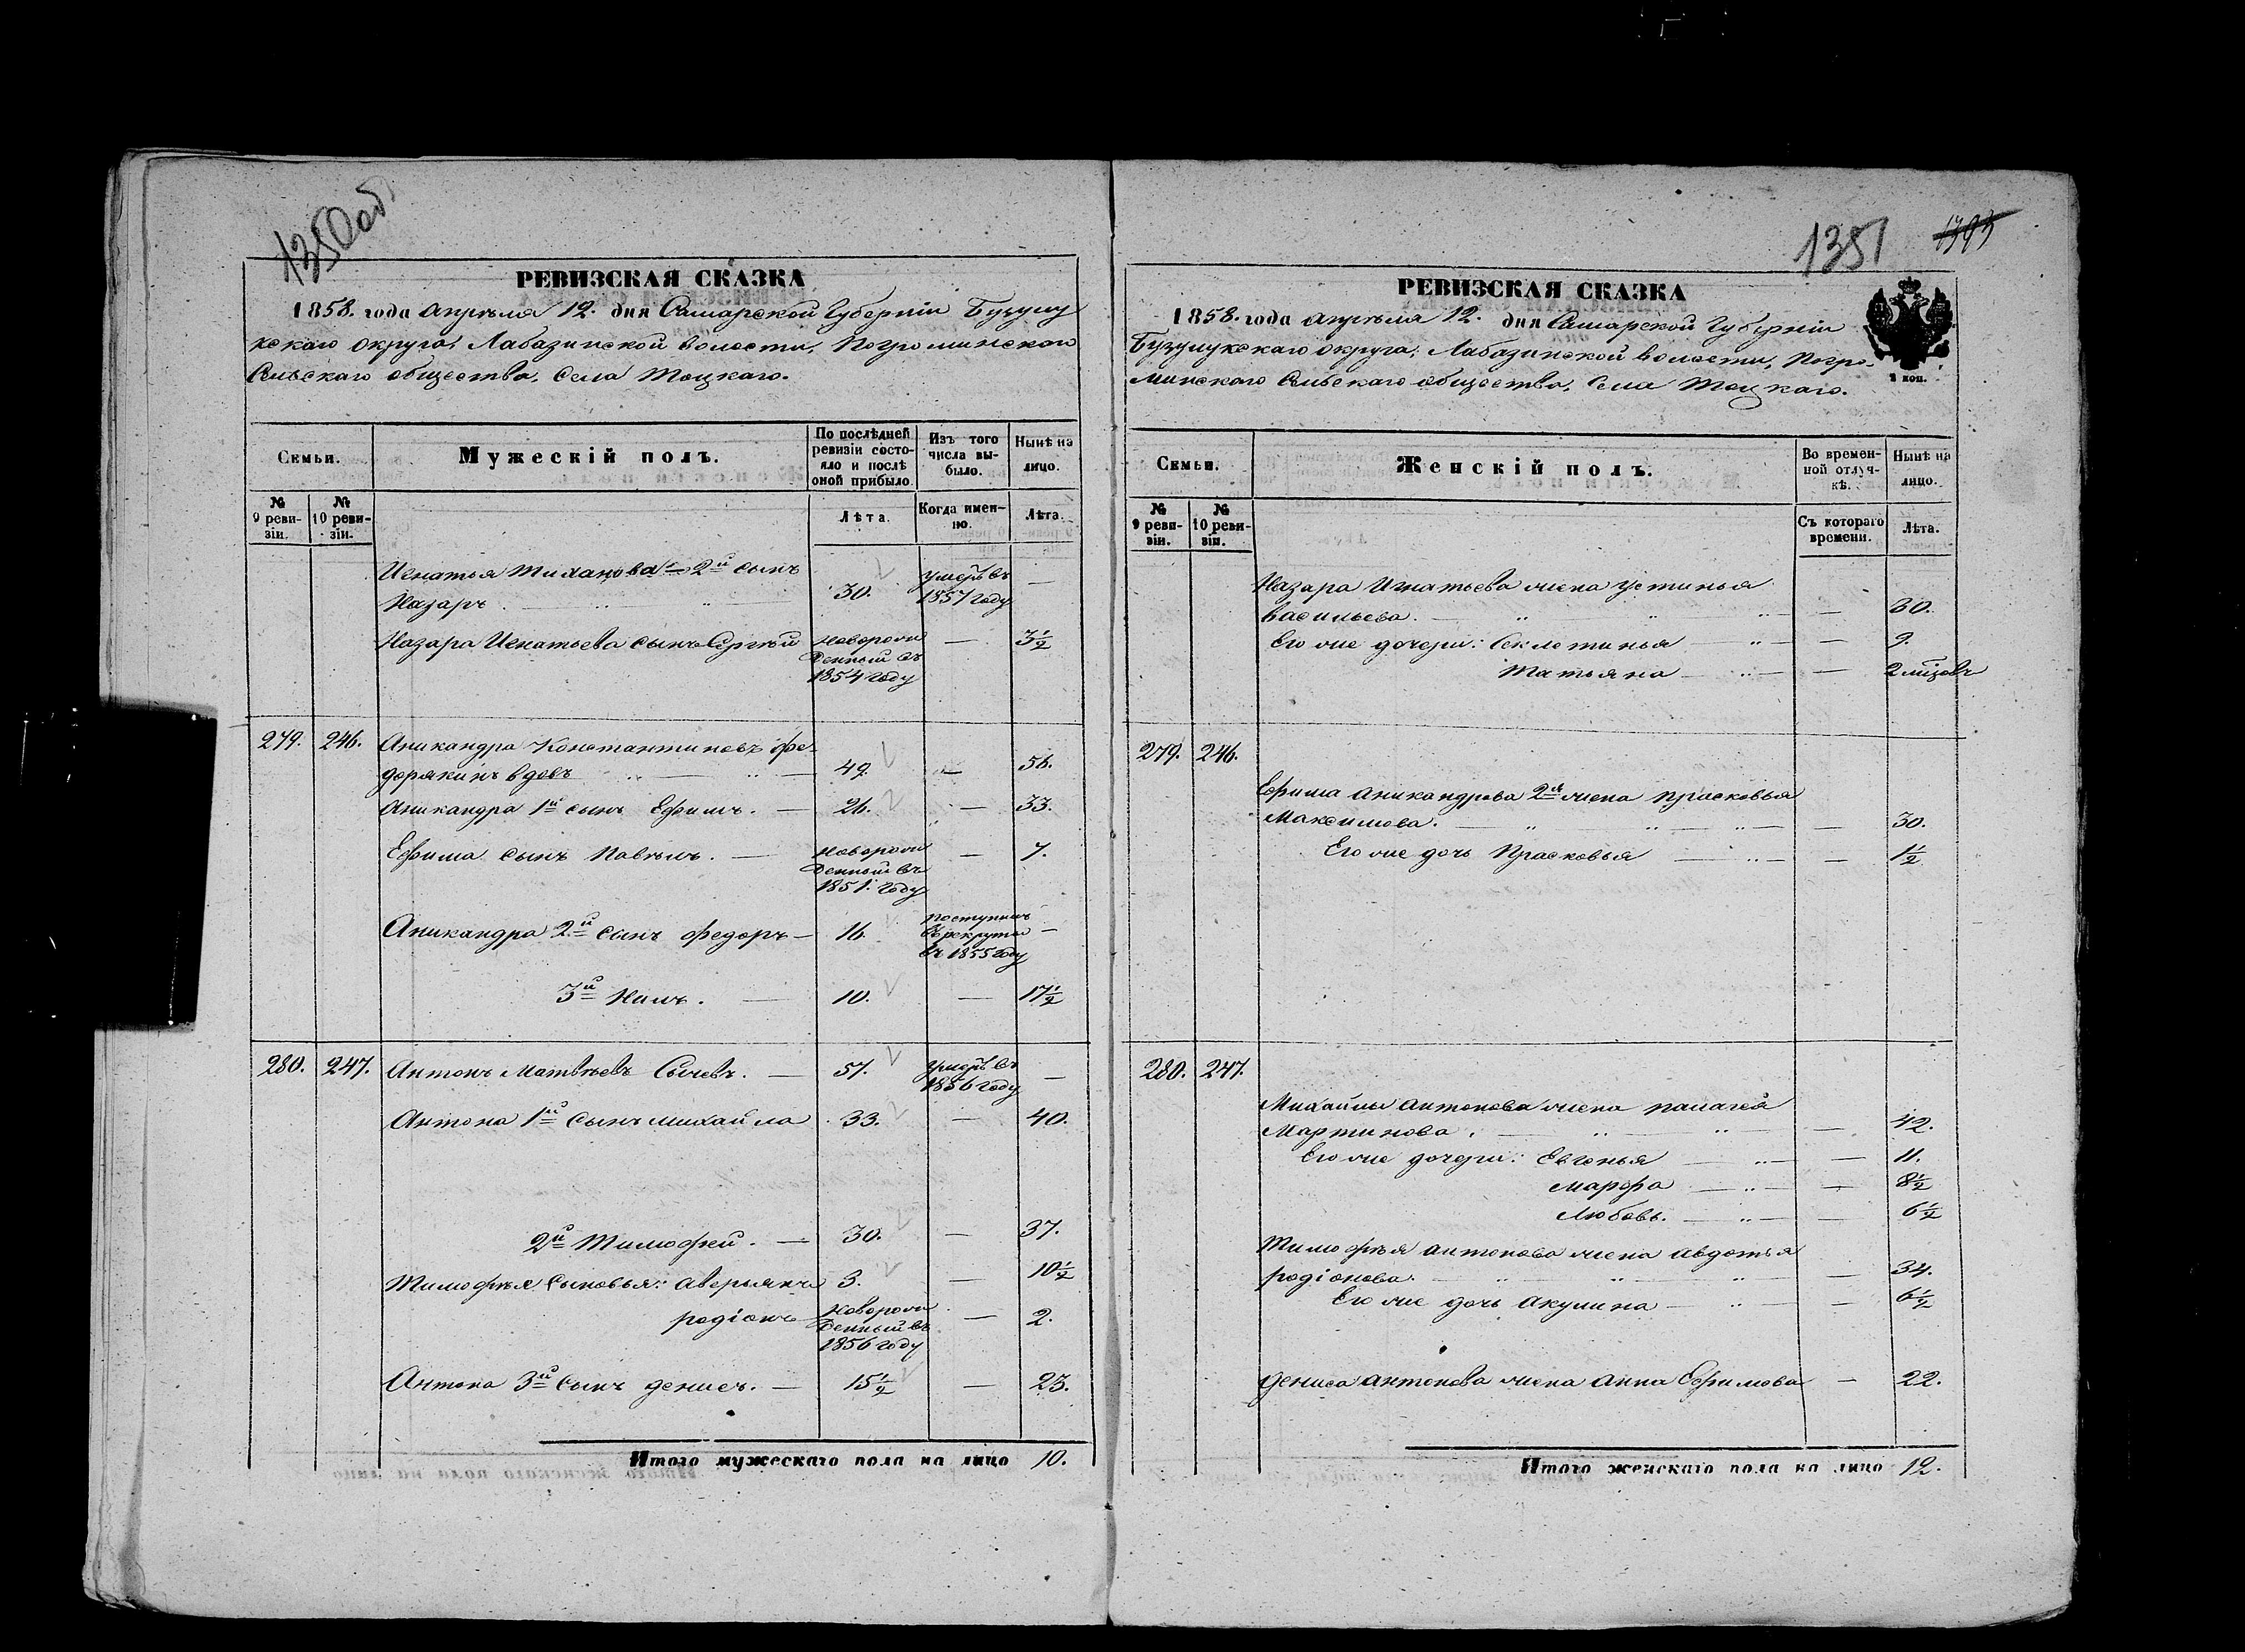 1350об
РЕВИЗСКАЯ СКАЗКА
1858. года Апрѣля 12. дня Самарской Губерніи Бузулу
кскаго округа, Лабазинской волости, Погроминскаго
Сельскаго общества, Села Тоцкаго.
Семьи.
Мужескій полъ.
По послѣдней ревизіи состояло и послѣ оной прибыло.
Изъ того числа выбыло.
Нынѣ на лицо.
№ 9 ревизіи.
№ 10 ревизіи.
Лѣта.
Когда именно.
Лѣта.
Игнатья 2й сынъ
Назаръ 30. умеръ въ 1857 году —
Назара Игнатьева сынъ Сергѣй новорожденный въ 1854 году — 3½
279. 246. Аникандра Константиновъ Фе-
дорякинъ вдовъ 49. — 56.
Аникандра 1й сынъ Ефимъ. — 26. — 33.
Ефима сынъ Павелъ. — новорожденный въ 1851. году — 7.
Аникандра 2й сынъ Федоръ — 16. поступилъ въ рекруты въ 1855 году —
3й Нилъ. — 10. — 17½
280. 247. Антонъ Матвѣевъ Сычевъ. — 57. умеръ въ 1856 году —
Антона 1й сынъ Михайла 33. — 40.
2й Тимофей. — 30. — 37.
Тимофѣя сыновья: Аверьянъ 3. — 10½
Родіонъ новорожденный въ 1856 году — 2.
Антона 3й сынъ Денисъ. — 15½ — 23.
Итого мужескаго пола на лицо 10.
1351
РЕВИЗСКАЯ СКАЗКА
1858. года Апрѣля 12. дня Самарской Губерніи
Бузулукскаго округа, Лабазинской волости, Погро-
минскаго Сельскаго общества, Села Тоцкаго.
Семьи.
Женскій полъ.
Во временной отлучкѣ.
Нынѣ на лицо.
№ 9 ревизіи.
№ 10 ревизіи.
Съ котораго времени.
Лѣта.
Назара Игнатьева жена Устинья
Васильева. — — 30.
Его же дочери: Секлетинья — — 9.
Татьяна — — 2
279. 246.
Ефима Аникандрова 2я жена Прасковья
Максимова. — — 30.
Его же дочь Прасковья — — 1½
280. 247.
Михайлы Антонова жена Палагея
Мартинова. — — 42.
Его же дочери: Евгенья — — 11.
Марфа — — 8½
Любовь. — — 6½
Тимофѣя Антонова жена Авдотья
Родіонова. — — 34.
Его же дочь Акулина — — 6½
Дениса Антонова жена Анна Ефимова — 22.
Итого женскаго пола на лицо 12.